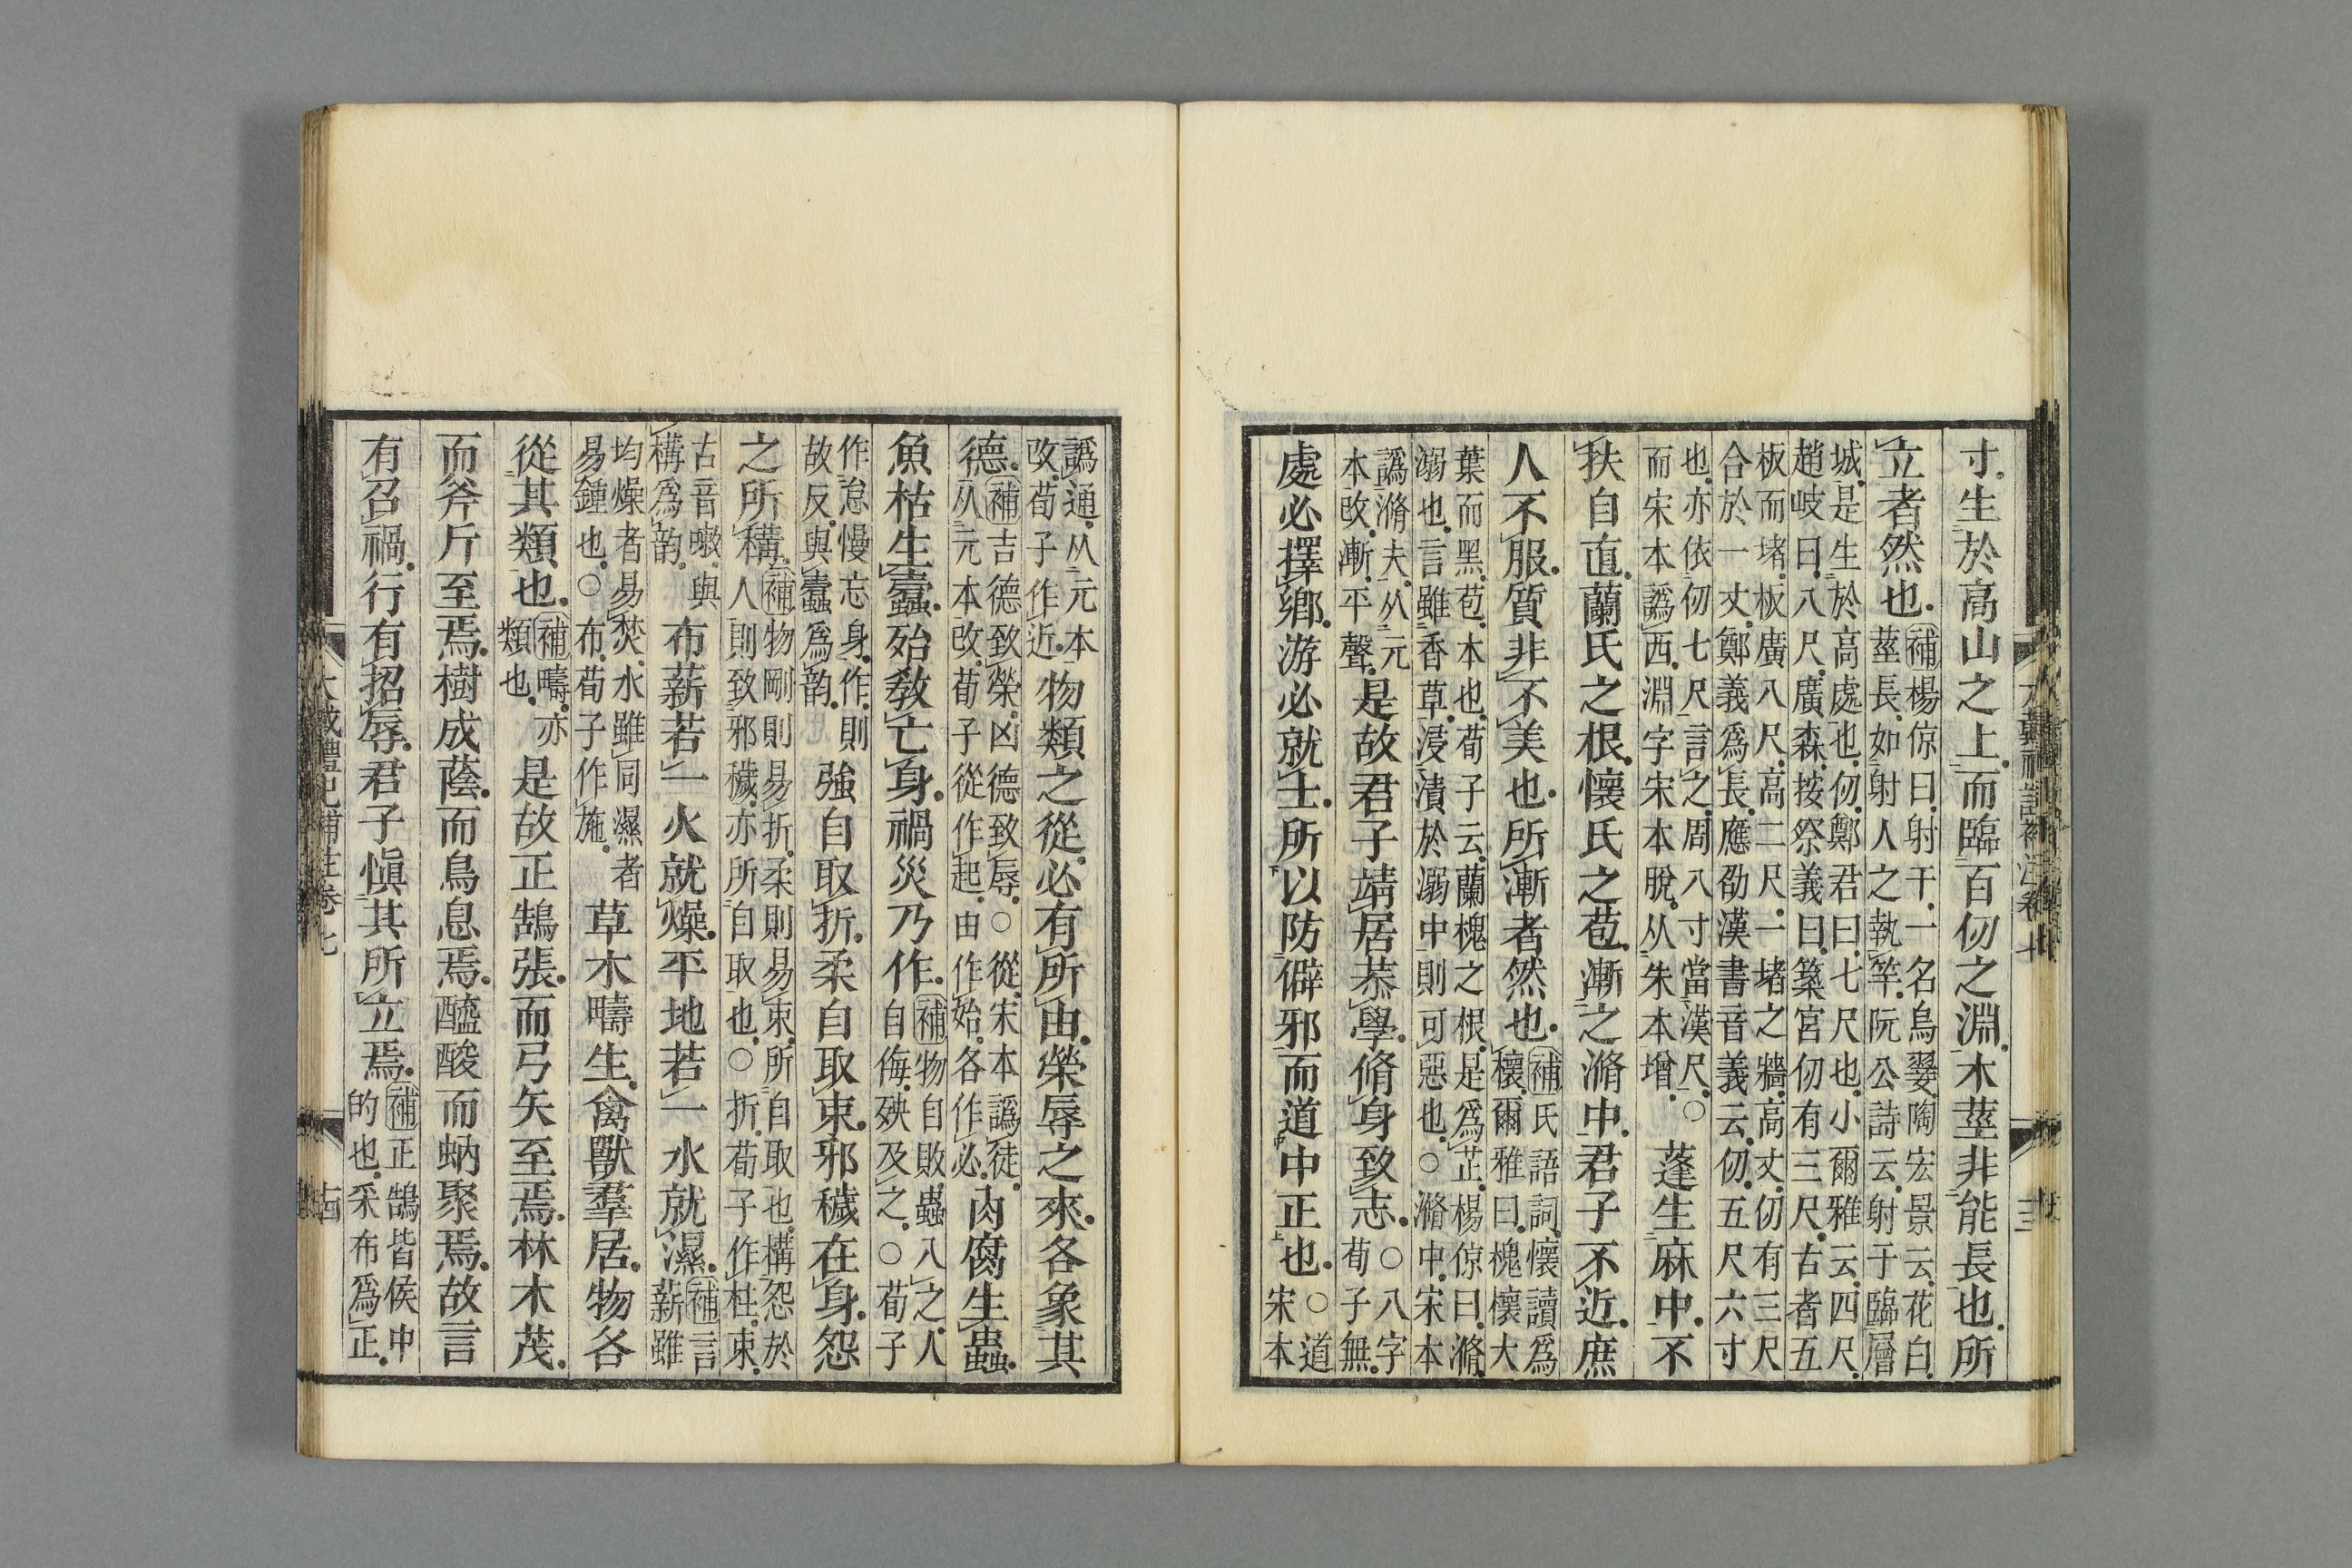 寸。生於高山之上。而臨百仞之淵。木莖非能長也。所
立者然也。補楊倞曰。射干。一名烏翣。陶宏景云。花白
莖長。如射人之執竿。阮公詩云。射干臨層
城。是生於高處也。仞。鄭君曰。七尺也。小爾雅云。四尺。
趙岐曰。八尺。廣森按。祭義曰。築宮仞有三尺。古者五
板而堵。板廣八尺。高二尺。一堵之牆。高丈。仞有三尺
合於一丈。鄭義爲長。應劭漢書音義云。仞。五尺六寸
也。亦依仞七尺言之。周八寸當漢尺。○
而宋本譌西。淵字宋本脫。从朱本增。
蓬生麻中。不
扶自直。蘭氏之根。懷氏之苞。漸之滫中。君子不近。庶
人不服。質非不美也。所漸者然也。補氏語詞。懷讀爲
櫰。爾雅曰。槐櫰大
葉而黑。苞。本也。荀子云。蘭槐之根。是爲芷。楊倞曰。滫。
溺也。言雖香草。浸漬於溺中。則可惡也。○滫中。宋本
譌滫夫。从元
本改。漸。平聲。
是故君子靖居恭學。脩身致志。○八字
荀子無。
處必擇鄉。游必就士。所以防僻邪而道中正也。○道
宋本
譌通。从元本
改。荀子作近。
物類之從。必有所由。榮辱之來。各象其
德。補吉德致榮。凶德致辱。○從。宋本譌徒。
从元本改。荀子從作起。由作始。各作必。
肉腐生蟲。
魚枯生蠹。殆敎亡身。禍災乃作。補物自敗。蟲入之。人
自侮。殃及之。○荀子
作怠慢忘身。作。則
故反。與蠹爲韵。
強自取折。柔自取束。邪穢在身。怨
之所構。補物剛則易折。柔則易束。所自取也。構怨於
人則致邪穢。亦所自取也。○折。荀子作柱。束。
古音曒。與
構爲韵。
布薪若一。火就燥。平地若一。水就濕。補言
薪雖
均。燥者易焚。水雖同。濕者
易鍾也。○布。荀子作施。
草木疇生。禽獸羣居。物各
從其類也。補疇。亦
類也。
是故正鵠張。而弓矢至焉。林木茂。
而斧斤至焉。樹成蔭。而鳥息焉。醯酸而蚋聚焉。故言
有召禍。行有招辱。君子愼其所立焉。補正鵠皆侯中
的也。采布爲正。
大戴禮記補注卷七